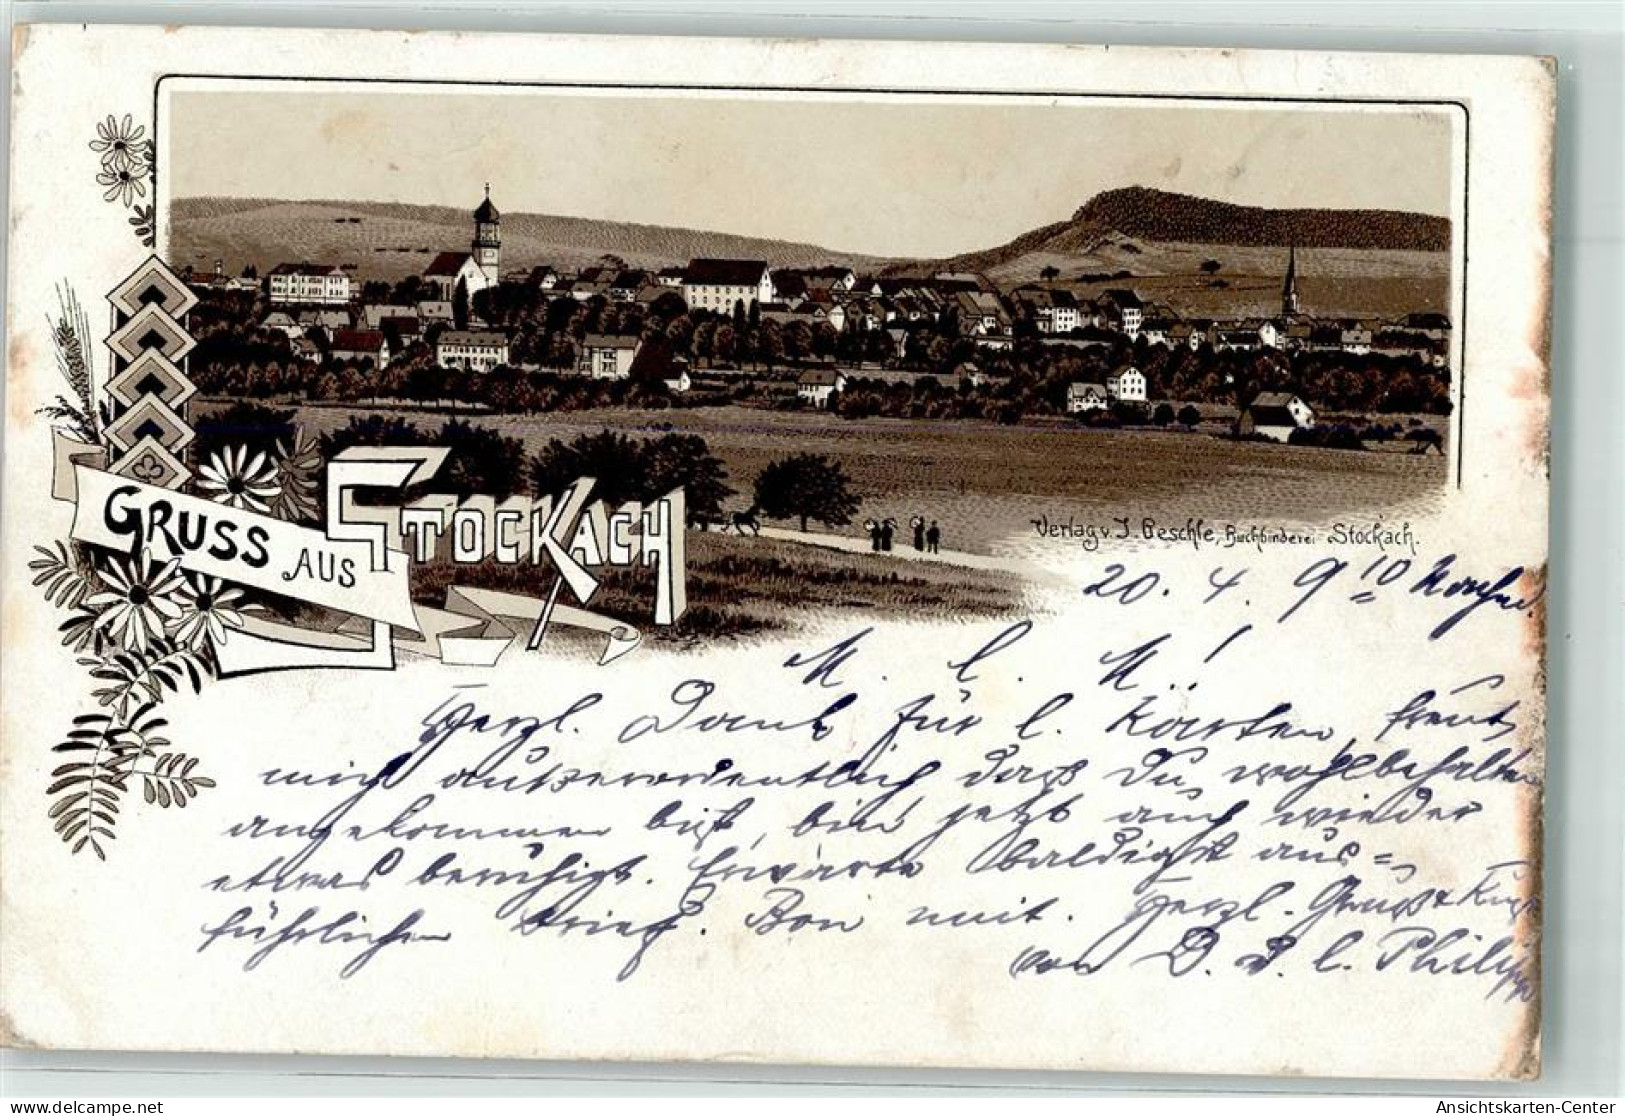 GRUSS AUS
STOCKACH
Verlag v. J. Beschle, Buchbinderei Stockach.
20. 4. 9 10
M. l. M!
Herzl. Dank für l. Karten, freut
mich außerordentlich dass Du wohlbehalten
angekommen bist, bin jetzt auch wieder
etwas beruhigt. Erwarte baldigst aus=
führlichen Brief. Bon mit. Herzl. Gruss & Kuss
von D. D. l. Philipp
Ansichtskarten-Center